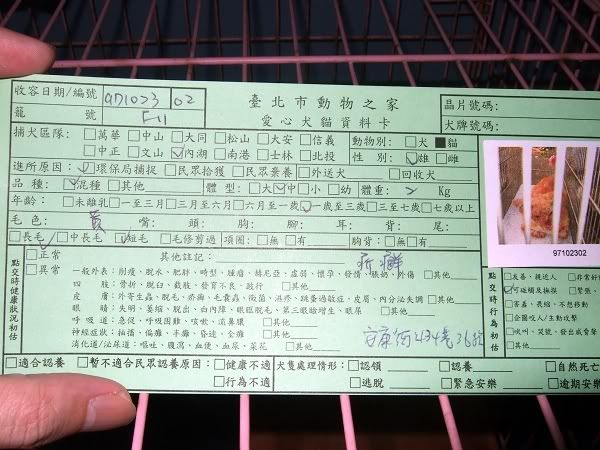 收容日期/編號 971023 02 臺北市動物之家 晶片號碼:
籠 號 F-11 愛心犬貓資料卡 犬牌號碼:
捕犬區隊: □萬華 □中山 □大同 □松山 □大安 □信義 動物別: □犬 ■貓
□中正 □文山 ☑內湖 □南港 □士林 □北投 性 別: ☑雄 □雌
進所原因: ☑環保局捕捉 □民眾拾獲 □民眾棄養 □外送犬 □回收犬
品 種: ☑混種 □其他 體 型: □大 ☑中 □小 □幼 體重: 2 Kg
年齡: □未離乳 □一至三月 □三月至六月 □六月至一歲 ☑一歲至三歲 □三至七歲 □七歲以上
毛 色: 黃 嘴: 頭: 胸: 腳: 耳: 背: 尾:
□長毛 □中長毛 ☑短毛 □毛修剪過 項圈: □無 □有 胸背: □無 □有
97102302
點交時健康狀況初估 □正常 其他註記: 疥癬
□異常 一般外表: 削瘦、脫水、肥胖、畸型、腫瘤、赫尼亞、虛弱、懷孕、發情、脹奶、外傷 □其他
四 肢: 骨折、脫臼、截肢、萎縮、不良於行、跛行 □其他
皮 膚: 外寄生蟲、脫毛、疥癬、毛囊蟲、黴菌、濕疹、跳蚤過敏症、皮屑、內分泌失調 □其他
眼 睛: 失明、萎縮、脫出、白內障、眼瞼脫毛、第三眼瞼增生、眼屎 □其他
呼 吸 道: 急促、呼吸困難、咳嗽、流鼻膿 □其他
神經症狀: 抽搐、偏癱、半癱、昏迷、全癱 □其他
消化道/泌尿道: 嘔吐、腹瀉、血便、血尿、菜花 □其他
點交時行為初估 □友善、親近人 □非常好
☑可碰觸及撫摸 □緊張、
□害羞、畏縮、不想移動
□會開咬人/主動攻擊
□吠叫、哭號、發出威脅聲
□其他
□適合認養 □暫不適合民眾認養原因: □健康不適 犬隻處理情形: □認領 □認養 □自然死亡
□行為不適 □逃脫 □緊急安樂 □逾期安樂